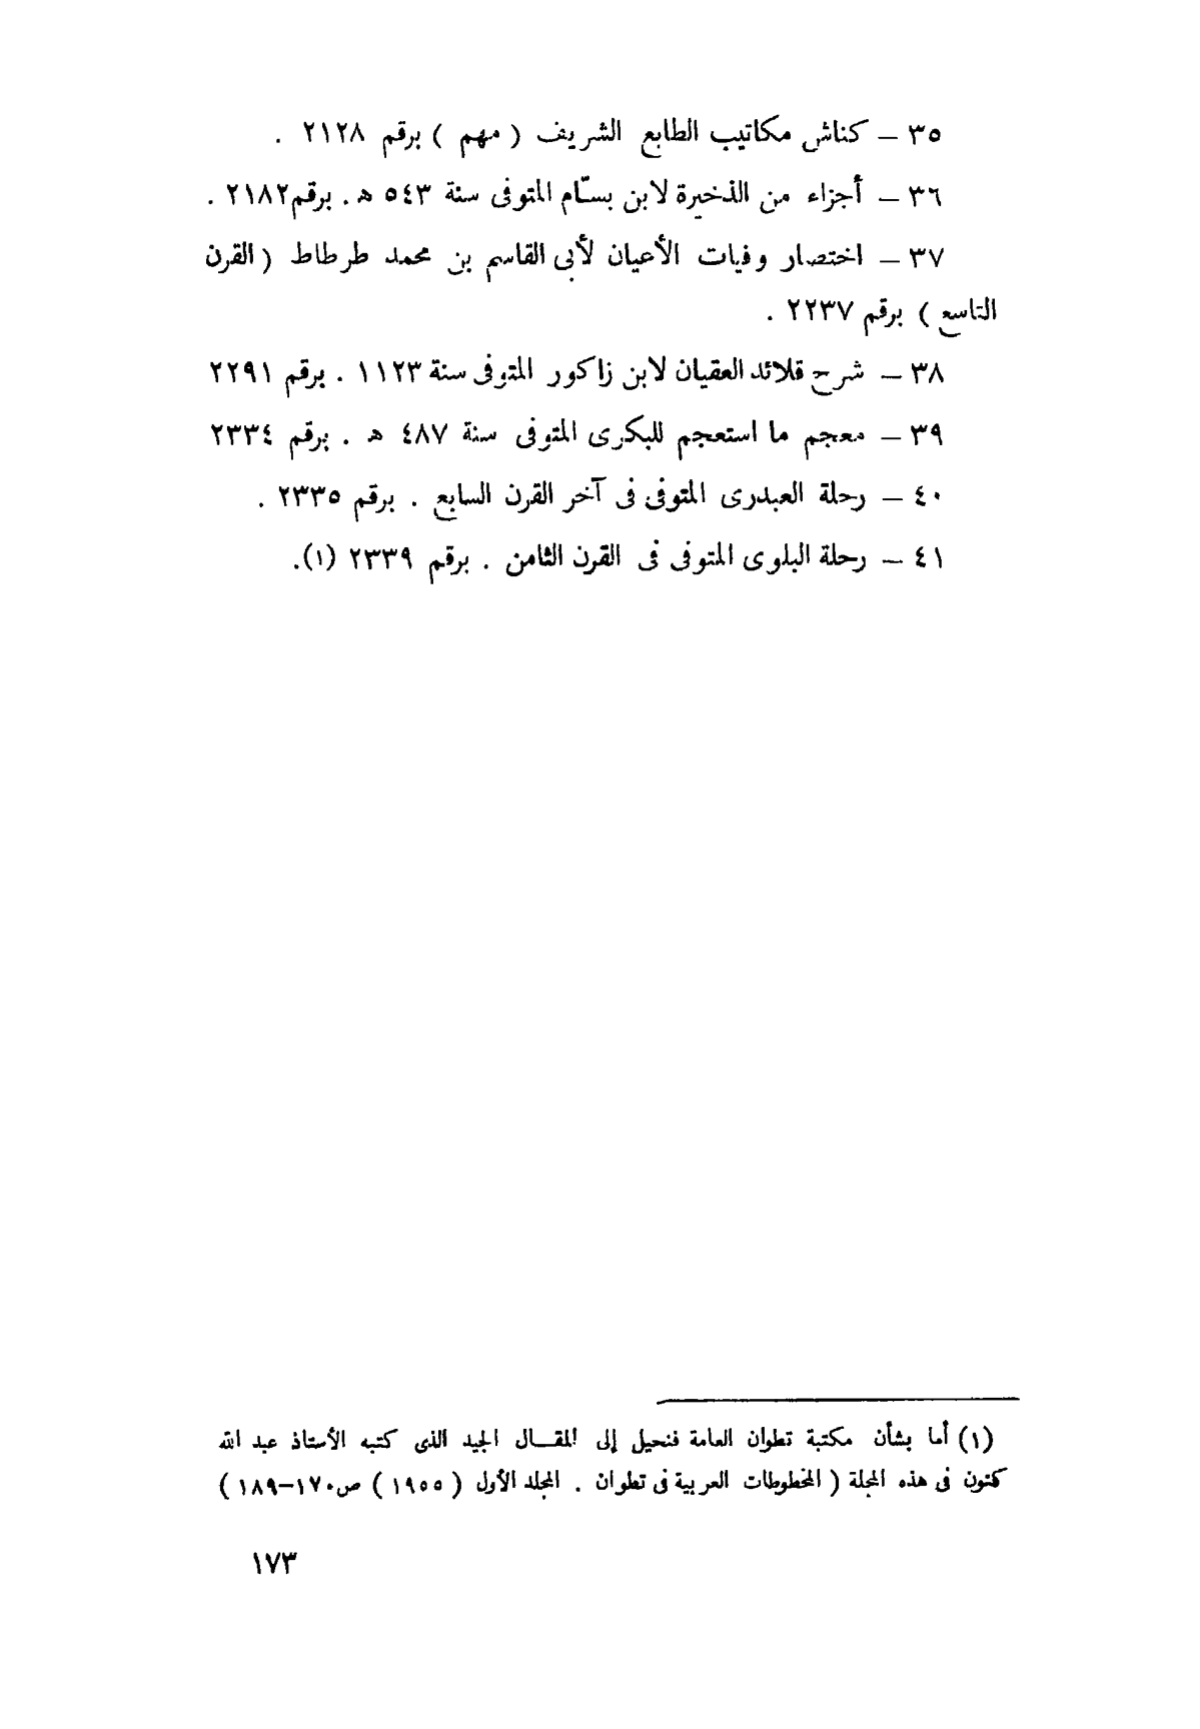 ٣٥ – كناش مكاتيب الطابع الشريف ( مهم ) برقم ٢١٢٨ .
٣٦ – أجزاء من الذخيرة لابن بسّام المتوفى سنة ٥٤٣ ه . برقم٢١٨٢ .
٣٧ – اختصار وفيات الأعيان لأبى القاسم بن محمد طرطاط ( القرن
التاسع ) برقم ٢٢٣٧ .
٣٨ – شرح قلائد العقيان لابن زاكور المتوفى سنة ١١٢٣ . برقم ٢٢٩١
٣٩ – معجم ما استعجم للبكرى المتوفى سنة ٤٨٧ ه . برقم ٢٣٣٤
٤٠ – رحلة العبدرى المتوفى فى آخر القرن السابع . برقم ٢٣٣٥ .
٤١ – رحلة البلوى المتوفى فى القرن الثامن . برقم ٢٣٣٩ (١).
(١) أما بشأن مكتبة تطوان العامة فنحيل إلى المقال الجيد الذى كتبه الأستاذ عبد الله
كنون فى هذه المجلة ( المخطوطات العربية فى تطوان . المجلد الأول ( ١٩٥٥ ) ص١٧٠–١٨٩ )
١٧٣